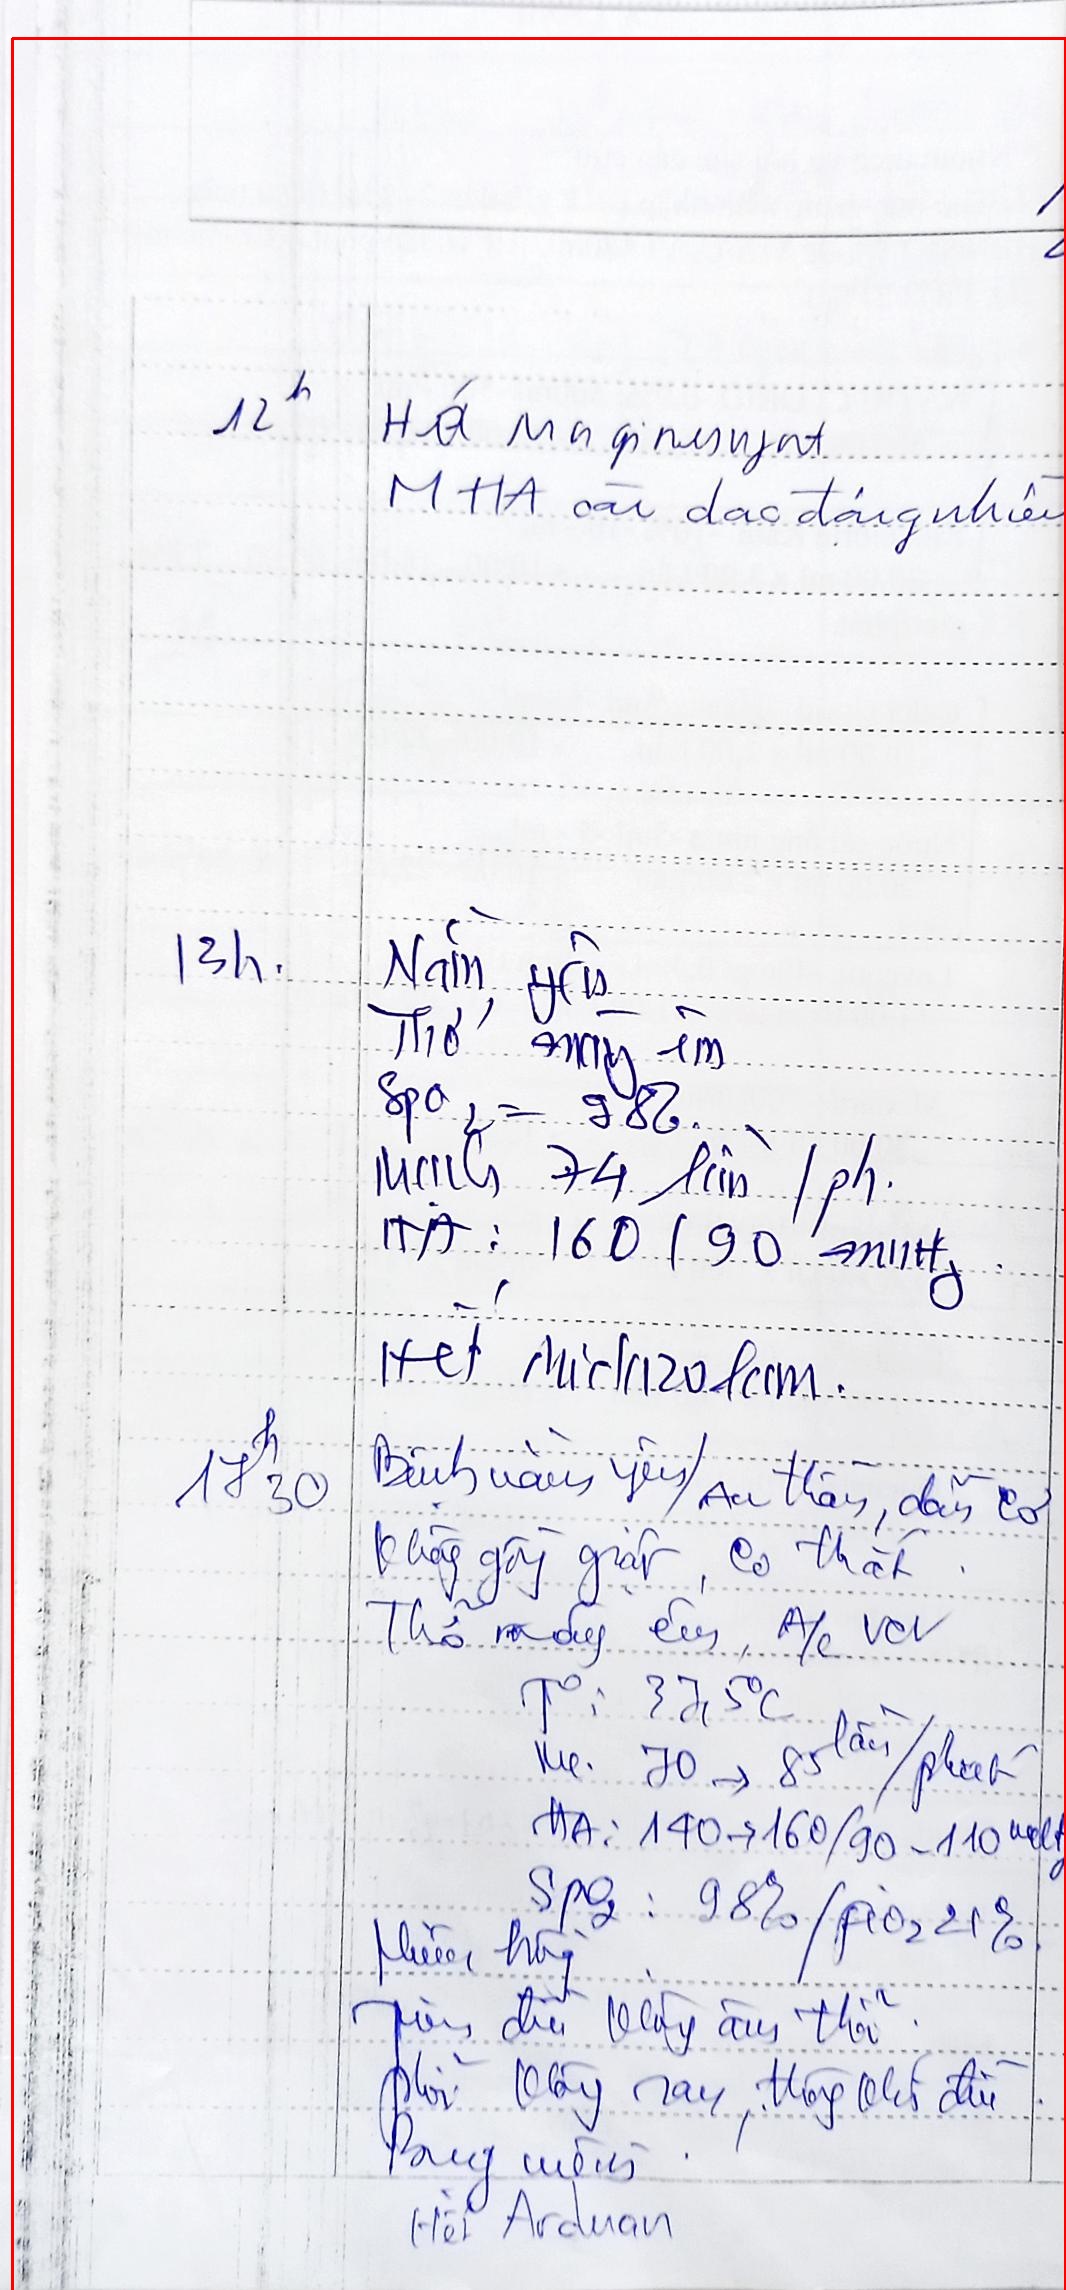 12h Hết Maginesunjat
MHA còn dao động nhiều
13h. Nằm yên
Thở máy êm
SpO2 = 98%.
Mạch 74 lần /ph.
HA: 160 / 90 mmHg.
Hết Midazolam.
17h30 Bệnh nằm yên/ An thần, dãn cơ
Không gồng giật, co thắt.
Thở máy êm, A/c VCV
T°: 37,5°C
M: 70 → 85 lần/phút
HA: 140→160/90-110 mmHg
SpO2: 98%/ FiO2 21%.
Niêm hồng
Tim đều không âm thổi.
Phổi không ran, thông khí đều.
Bụng mềm.
Hết Arduan